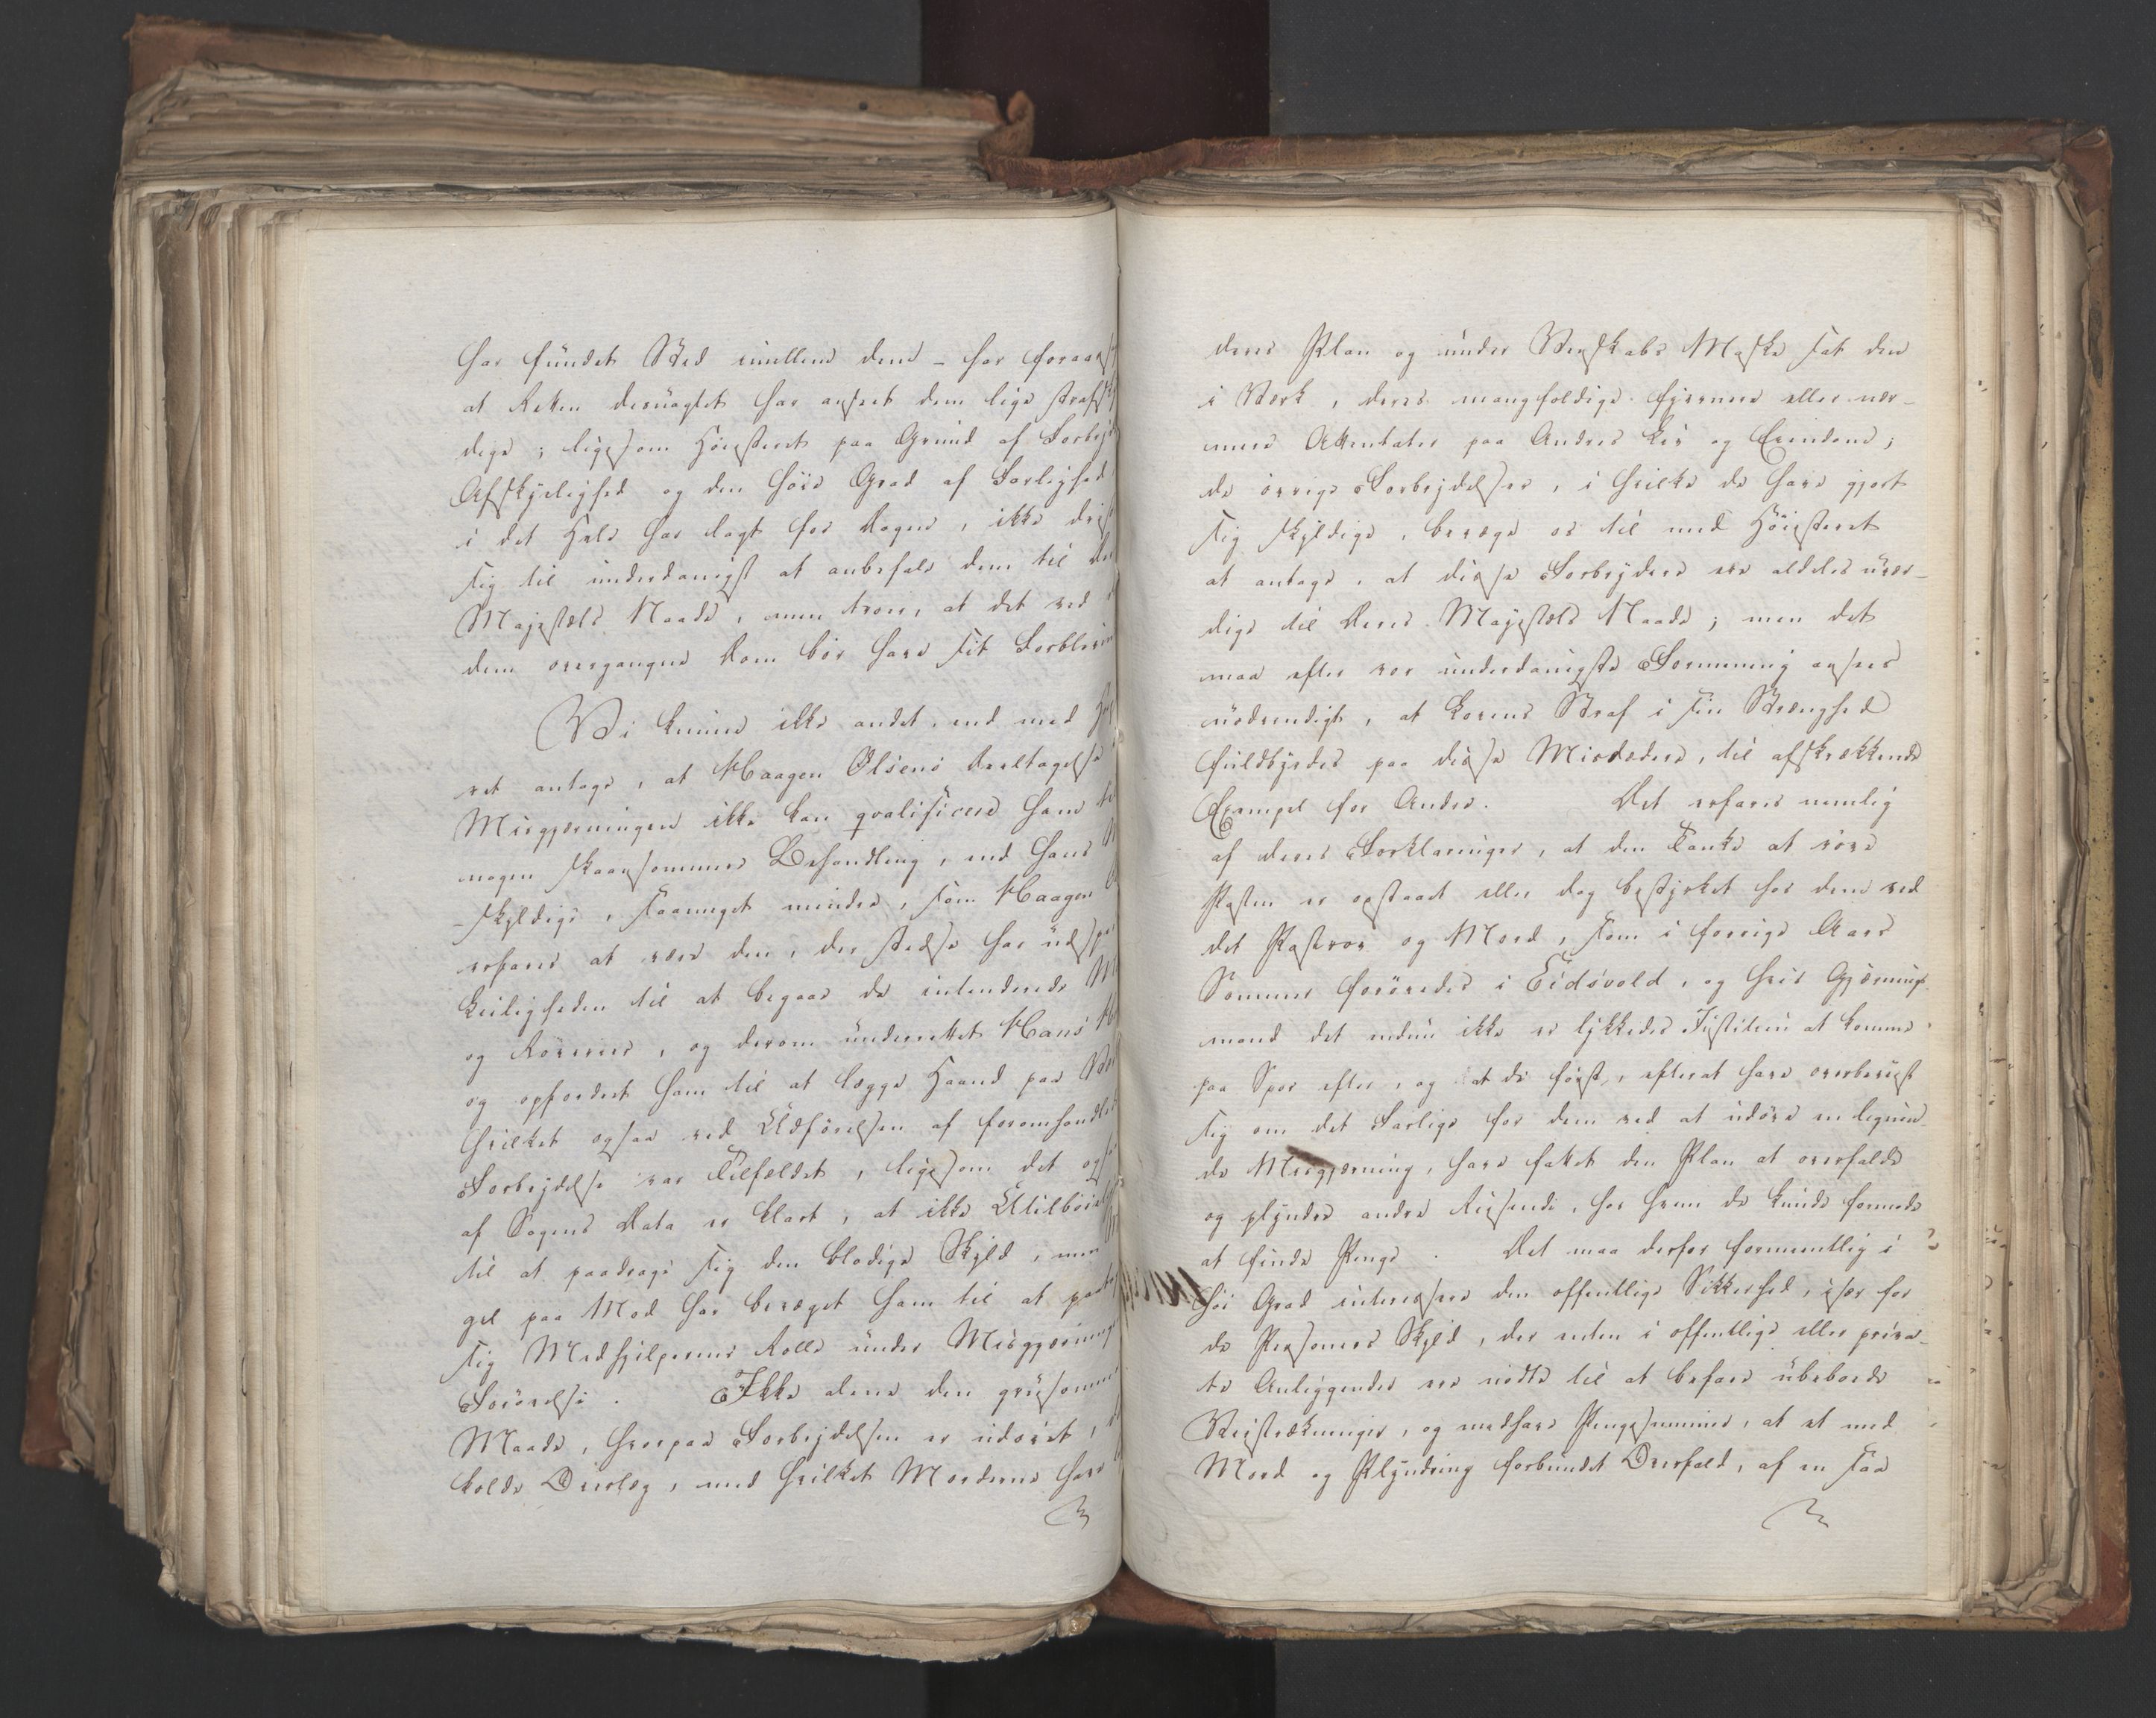 har fundet Sted imellem dem – har foraar
at Retten desuagtet har anseet dem lige straf
dige; ligesom Høiesteret paa Grund af Forbry
Afskyelighed og den høie Grad af Farlighed
i det Hele har lagt for Dagen, ikke
sig til underdanigst at anbefale dem til
Majestæts Naade, men troer, at det ved
dem overgangne Dom bør have sit Forbliven
Vi kunne ikke andet, end med
ret antage, at Haagen Olsens Deeltagelse
Misgjærningen ikke kan qvalificere ham
nogen skaansommere Behandling, end hans
skyldige, saameget mindre, som Haagen
erfares at være den, der stedse har
Leiligheden til at begaae de intenderede
og Røverier, og derom underrettet Hans
og opfordret ham til at lægge Haand paa
hvilket ogsaa ved Udførelsen af foromhandle
Forbrydelse var Tilfældet, ligesom det og
af Sagens Data er klart, at ikke Utilbøie
til at paadrage sig den blodige Skyld, men
gel paa Mod har bevæget ham til at
sig Medhjelperens Rolle under Misgjernin
Forøvelse. Ikke alene den grusomme
Maade, hvorpaa Forbrydelsen er udøvet,
kolde Overlæg, med hvilket Morderne have
deres Plan og under Venskabs Maske sat den
i Værk, deres mangfoldige fjernere eller nær-
mere Attentater paa Andres Liv og Eiendom;
de øvrige Forbrydelser, i hvilke de have gjort
sig skyldige, bevæge os til med Høiesteret
at antage, at disse Forbrydere ere aldeles uvær-
dige til Deres Majestæts Naade; men det
maa efter vor underdanigste Formening ansees
nødvendigt, at Lovens Straf i sin Strenghed
fuldbyrdes paa disse Misdædere, til afskrækkende
Exempel for Andre. Det erfares nemlig
af deres Forklaringer, at den Tanke at røve
Posten er opstaaet eller dog bestyrket hos dem ved
det Postrov og Mord, som i forrige Aars
Sommer forøvedes i Eidsvold, og hvis Gjernings
mand det endnu ikke er lykkedes Justitien at komme
paa Spor efter, og at de først, efterat have overbeviist
sig om det Farlige for dem ved at udøve en lignen
de Misgjærning, have fattet den Plan at overfalde
og plyndre andre Reisende, hos hvem de kunde formode
at finde Penge. Det maa derfor formeentlig i
høi Grad interessere den offentlige Sikkerhed, især for
de Personers Skyld, der enten i offentlige eller priva-
te Anliggender ere nødte til at befare ubeboede
Veistrækninger, og medhave Pengesummer, at et med
Mord og Plyndring forbundet Overfald, af en saa